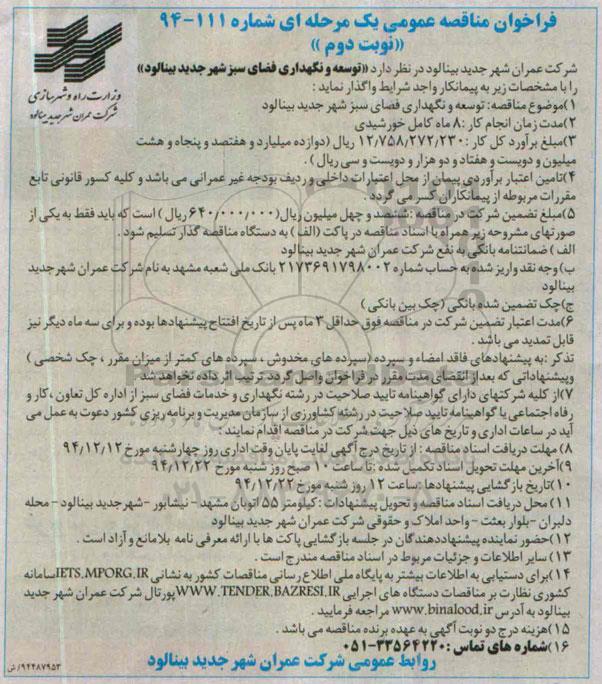 فراخوان مناقصه عمومی یک مرحله ای شماره ۱۱۱-۹۴
«نوبت دوم»
وزارت راه و شهرسازی
شرکت عمران شهر جدید بینالود
شرکت عمران شهر جدید بینالود در نظر دارد «توسعه و نگهداری فضای سبز شهر جدید بینالود»
را با مشخصات زیر به پیمانکار واجد شرایط واگذار نماید :
۱)موضوع مناقصه: توسعه و نگهداری فضای سبز شهر جدید بینالود
۲)مدت زمان انجام کار :۸ ماه کامل خورشیدی
۳)مبلغ برآورد کل کار :۱۲،۷۵۸،۲۷۲،۲۳۰ ریال (دوازده میلیارد و هفتصد و پنجاه و هشت
میلیون و دویست و هفتاد و دو هزار و دویست و سی ریال) .
۴)تامین اعتبار برآوردی پیمان از محل اعتبارات داخلی و ردیف بودجه غیر عمرانی می باشد و کلیه کسور قانونی تابع
مقررات مربوطه از پیمانکاران کسر می گردد .
۵)مبلغ تضمین شرکت در مناقصه :ششصد و چهل میلیون ریال(۶۴۰،۰۰۰،۰۰۰ ریال ) است که باید فقط به یکی از
صورتهای مشروحه زیر همراه با اسناد مناقصه در پاکت (الف) به دستگاه مناقصه گذار تسلیم شود .
الف ) ضمانتنامه بانکی به نفع شرکت عمران شهر جدید بینالود
ب) وجه نقد واریز شده به حساب شماره ۲۱۷۳۶۹۱۷۹۸۰۰۲ بانک ملی شعبه مشهد به نام شرکت عمران شهر جدید
بینالود
ج)چک تضمین شده بانکی (چک بین بانکی )
۶)مدت اعتبار تضمین شرکت در مناقصه فوق حداقل ۳ ماه پس از تاریخ افتتاح پیشنهادها بوده و برای سه ماه دیگر نیز
قابل تمدید می باشد .
تذکر :به پیشنهادهای فاقد امضاء و سپرده (سپرده های مخدوش ، سپرده های کمتر از میزان مقرر ، چک شخصی )
وپیشنهاداتی که بعد از انقضای مدت مقرر در فراخوان واصل گردد ترتیب اثر داده نخواهد شد
۷)از کلیه شرکتهای دارای گواهینامه تایید صلاحیت در رشته نگهداری و خدمات فضای سبز از اداره کل تعاون ،کار و
رفاه اجتماعی یا گواهینامه تایید صلاحیت در رشته کشاورزی از سازمان مدیریت و برنامه ریزی کشور دعوت به عمل می
آید در ساعات اداری و تاریخ های ذیل جهت شرکت در مناقصه اقدام نمایند:
۸) مهلت دریافت اسناد مناقصه : از تاریخ درج آگهی لغایت پایان وقت اداری روز چهارشنبه مورخ ۹۴/۱۲/۱۲
۹)آخرین مهلت تحویل اسناد تکمیل شده :تا ساعت ۱۰ صبح روز شنبه مورخ ۹۴/۱۲/۲۲
۱۰)تاریخ بازگشایی پیشنهادها :ساعت ۱۲ روز شنبه مورخ ۹۴/۱۲/۲۲
۱۱) محل دریافت اسناد مناقصه و تحویل پیشنهادات : کیلومتر ۵۵ اتوبان مشهد - نیشابور -شهر جدید بینالود - محله
دلبران -بلوار بعثت - واحد املاک و حقوقی شرکت عمران شهر جدید بینالود
۱۲)حضور نماینده پیشنهاددهندگان در جلسه بازگشایی پاکت ها با ارائه معرفی نامه بلامانع و آزاد است .
۱۳) سایر اطلاعات و جزئیات مربوط در اسناد مناقصه مندرج است .
۱۴)برای دستیابی به اطلاعات بیشتر به پایگاه ملی اطلاع رسانی مناقصات کشور به نشانی IETS.MPORG.IRسامانه
کشوری نظارت بر مناقصات دستگاه های اجرایی WWW.TENDER.BAZRESI.IRپورتال شرکت عمران شهر جدید
بینالود به آدرس www.binalood.ir مراجعه فرمایید .
۱۵)هزینه درج دو نوبت آگهی به عهده برنده مناقصه می باشد .
۱۶)شماره های تماس :۳۳۵۶۴۲۲۰-۰۵۱
روابط عمومی شرکت عمران شهر جدید بینالود
۹۴۴۸۷۹۵۳/ش